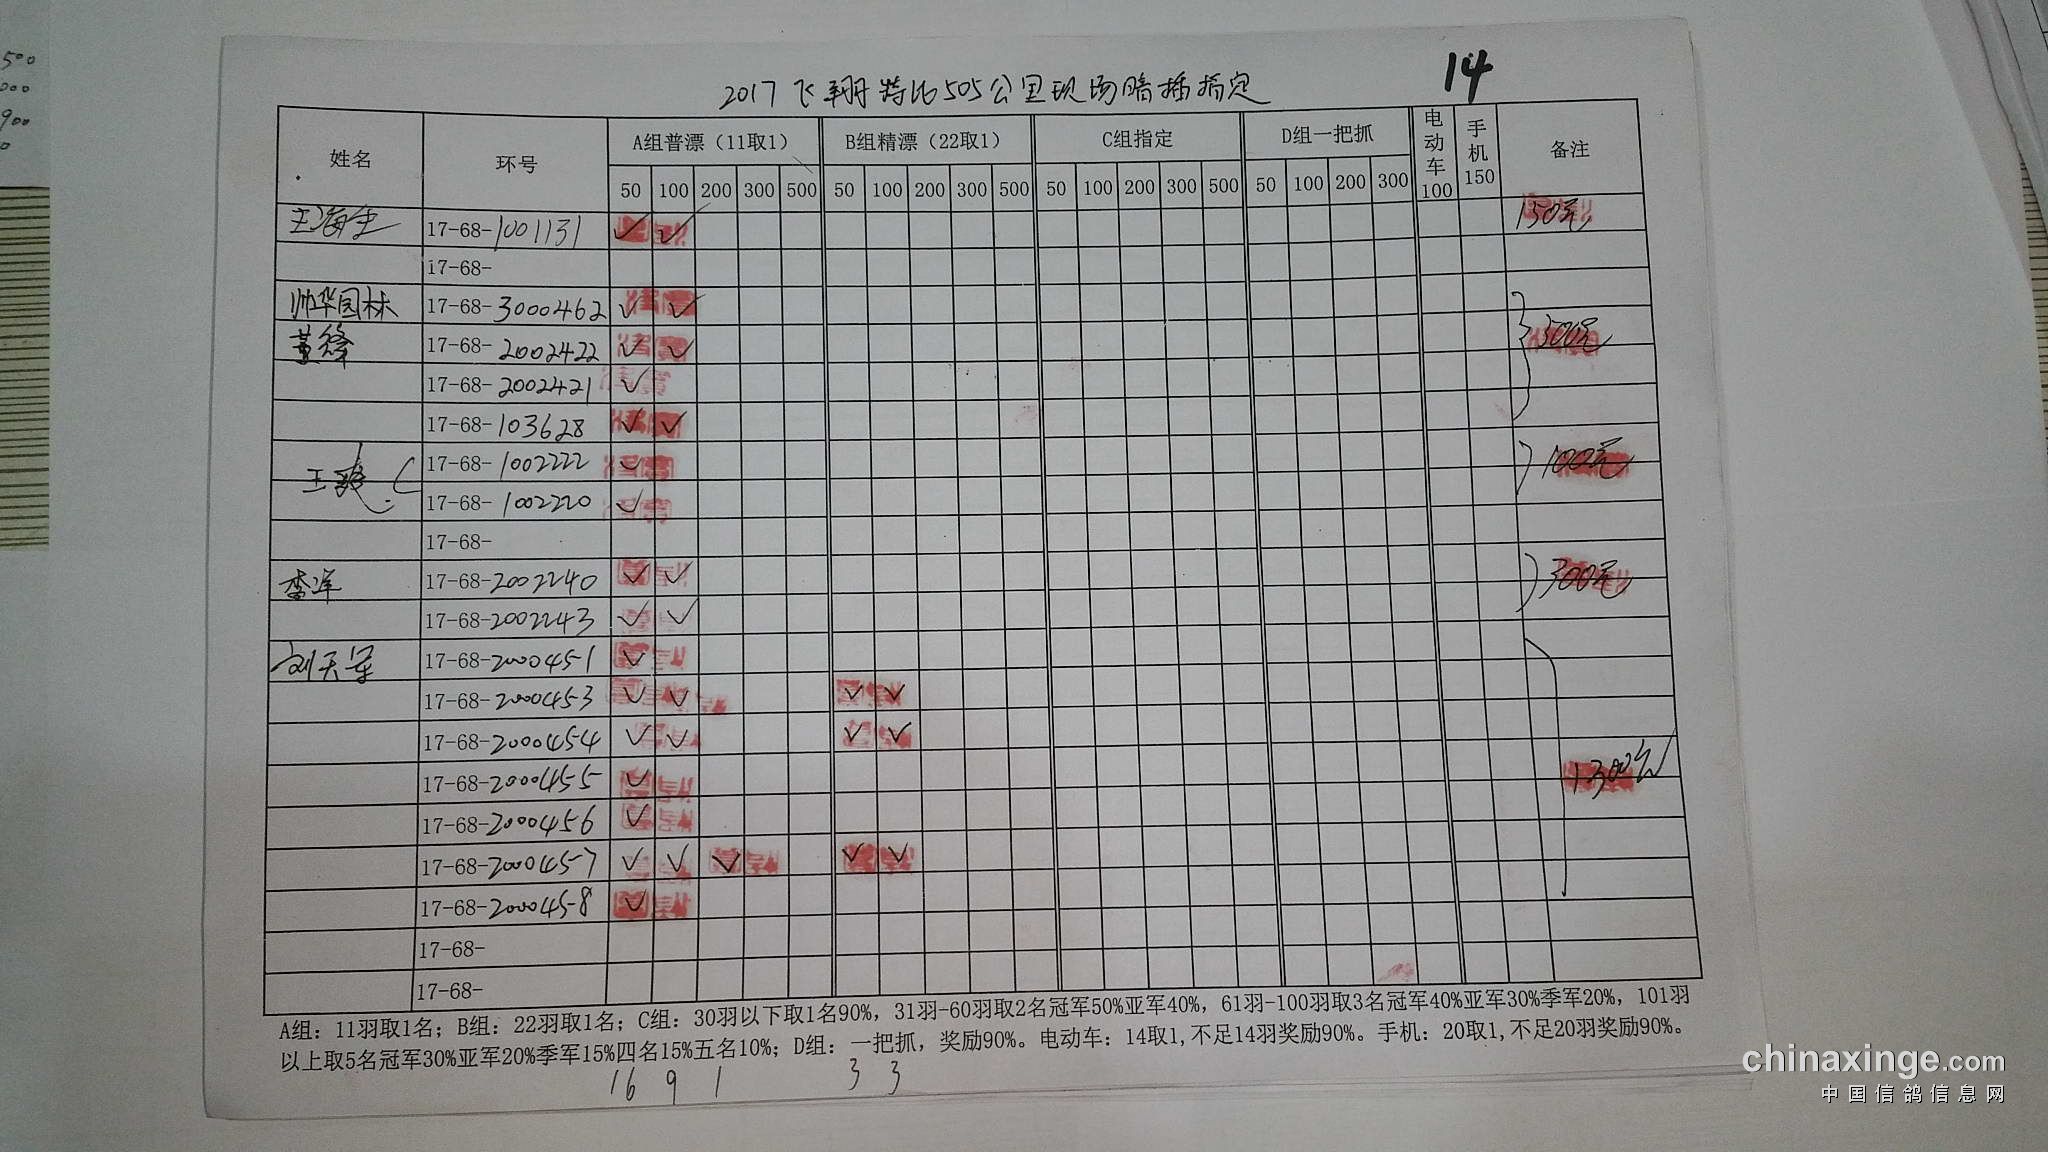 500
000
900
0
14
2017飞翔特比505公里现场暗插指定
姓名 环号 A组普漂（11取1） B组精漂（22取1） C组指定 D组一把抓 电动车100 手机150 备注
50 100 200 300 500 50 100 200 300 500 50 100 200 300 500 50 100 200 300
王海生 17-68-1001131 ✓ ✓ 150元
17-68-
帅华园林 17-68-3000462 ✓ ✓
董锋 17-68-2002422 ✓ ✓ 500元
17-68-2002421 ✓
17-68-103628 ✓ ✓
17-68-1002222 ✓ 100元
王 17-68-1002220 ✓
17-68-
李军 17-68-2002240 ✓ ✓ 300元
17-68-2002243 ✓ ✓
刘天军 17-68-2000451 ✓
17-68-2000453 ✓ ✓ ✓ ✓
17-68-2000454 ✓ ✓ ✓ ✓
17-68-2000455 ✓ 1300元
17-68-2000456 ✓
17-68-2000457 ✓ ✓ ✓ ✓ ✓
17-68-2000458 ✓
17-68-
17-68-
A组：11羽取1名；B组：22羽取1名；C组：30羽以下取1名90%，31羽-60羽取2名冠军50%亚军40%，61羽-100羽取3名冠军40%亚军30%季军20%，101羽
以上取5名冠军30%亚军20%季军15%四名15%五名10%；D组：一把抓，奖励90%。电动车：14取1,不足14羽奖励90%。手机：20取1,不足20羽奖励90%。
16 9 1 3 3
chinaxinge.com
中国信鸽信息网